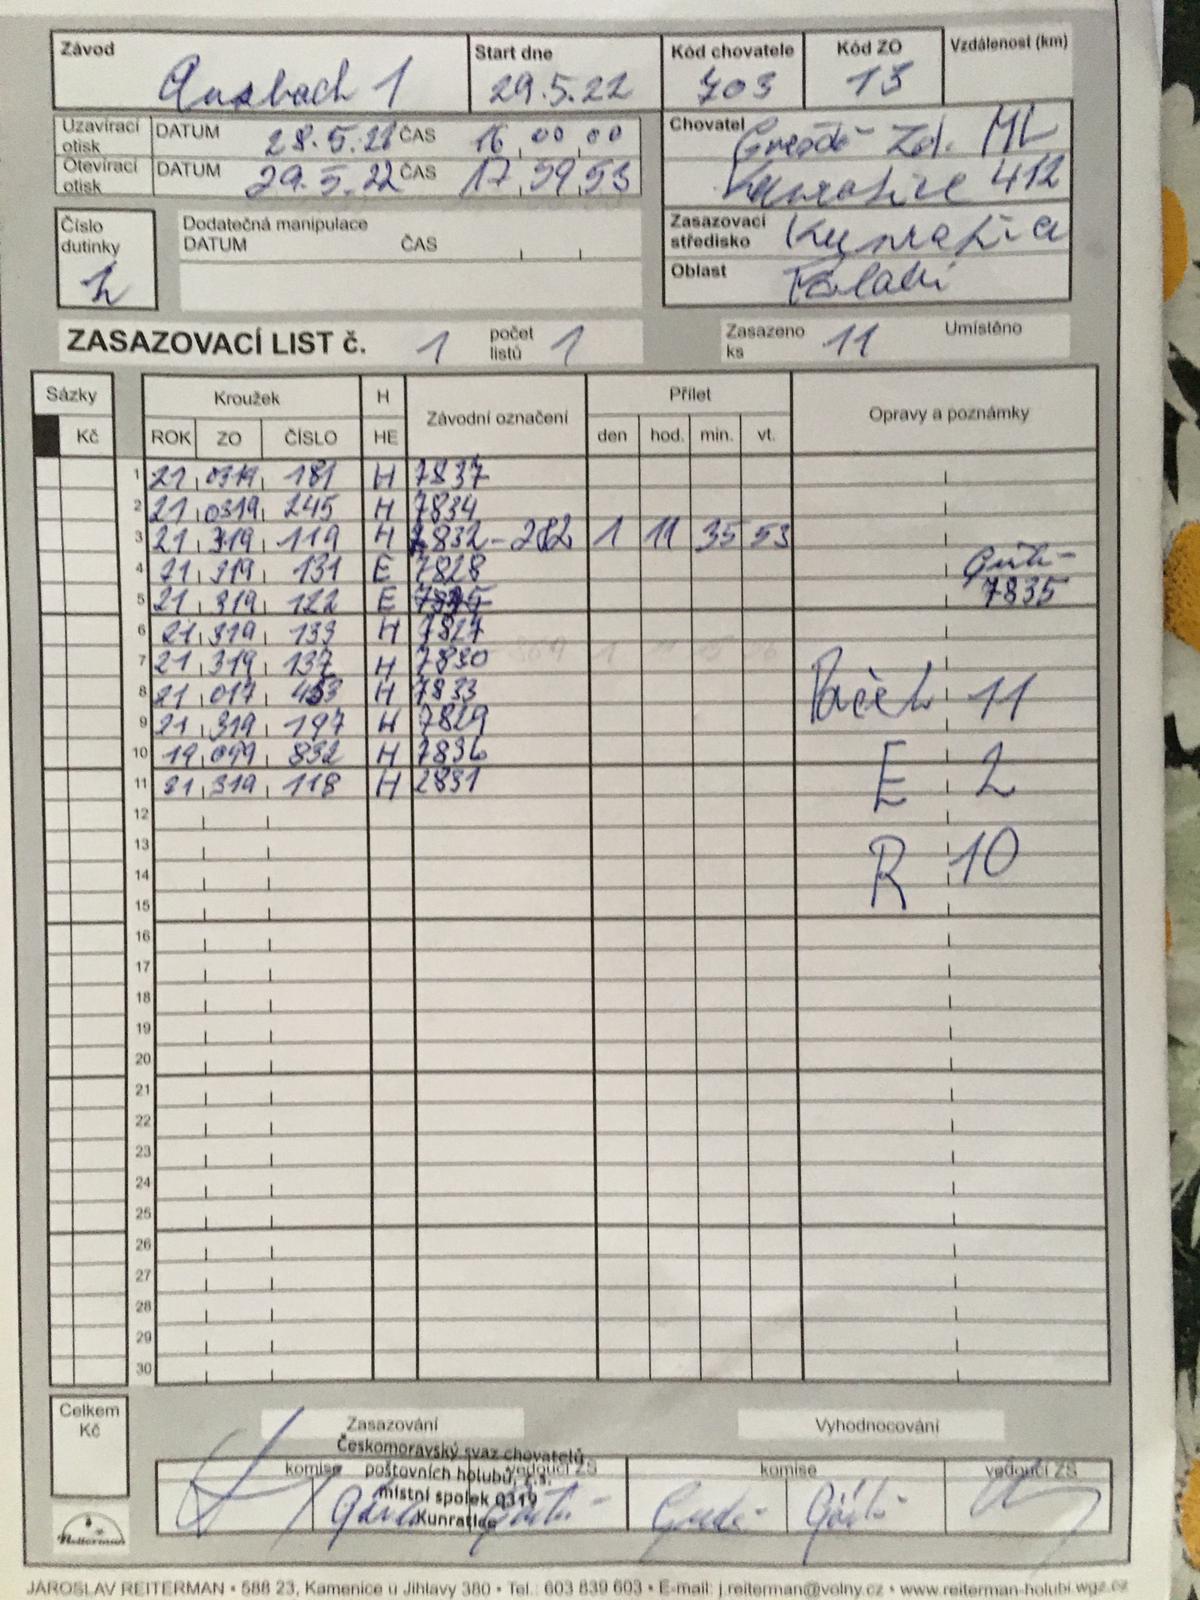 Závod Start dne Kód chovatele Kód ZO Vzdálenost (km)
Ansbach 1 29.5.22 703 13
Uzavírací otisk DATUM 28.5.22 ČAS 16 00 00
Otevírací otisk DATUM 29.5.22 ČAS 17 59 53
Chovatel Zd. ML
Kunratice 412
Číslo dutinky 2
Dodatečná manipulace
DATUM ČAS
Zasazovací středisko Kunratice
Oblast
ZASAZOVACÍ LIST č. 1 počet listů 1 Zasazeno ks 11 Umístěno
Sázky Kroužek H Závodní označení Přílet Opravy a poznámky
Kč ROK ZO ČÍSLO HE den hod. min. vt.
1 21 0319 181 H 7837
2 21 0319 245 H 7834
3 21 319 119 H 7832-282 1 11 35 53
4 21 319 131 E 7828
5 21 319 122 E 7835
6 21 319 133 H 7827
7 21 319 137 H 7830
8 21 017 453 H 7833
9 21 319 197 H 7829
10 19 099 832 H 7836
11 21 319 118 H 2831
Počet 11
E 2
R 10
12
13
14
15
16
17
18
19
20
21
22
23
24
25
26
27
28
29
30
Celkem Kč
Zasazování Vyhodnocování
Českomoravský svaz chovatelů
poštovních holubů, z.s.
místní spolek 0319
Kunratice
komise vedoucí ZS komise vedoucí ZS
Reiterman
JAROSLAV REITERMAN • 588 23, Kamenice u Jihlavy 380 • Tel.: 603 839 603 • E-mail: j.reiterman@volny.cz • www.reiterman-holubi.wgz.cz